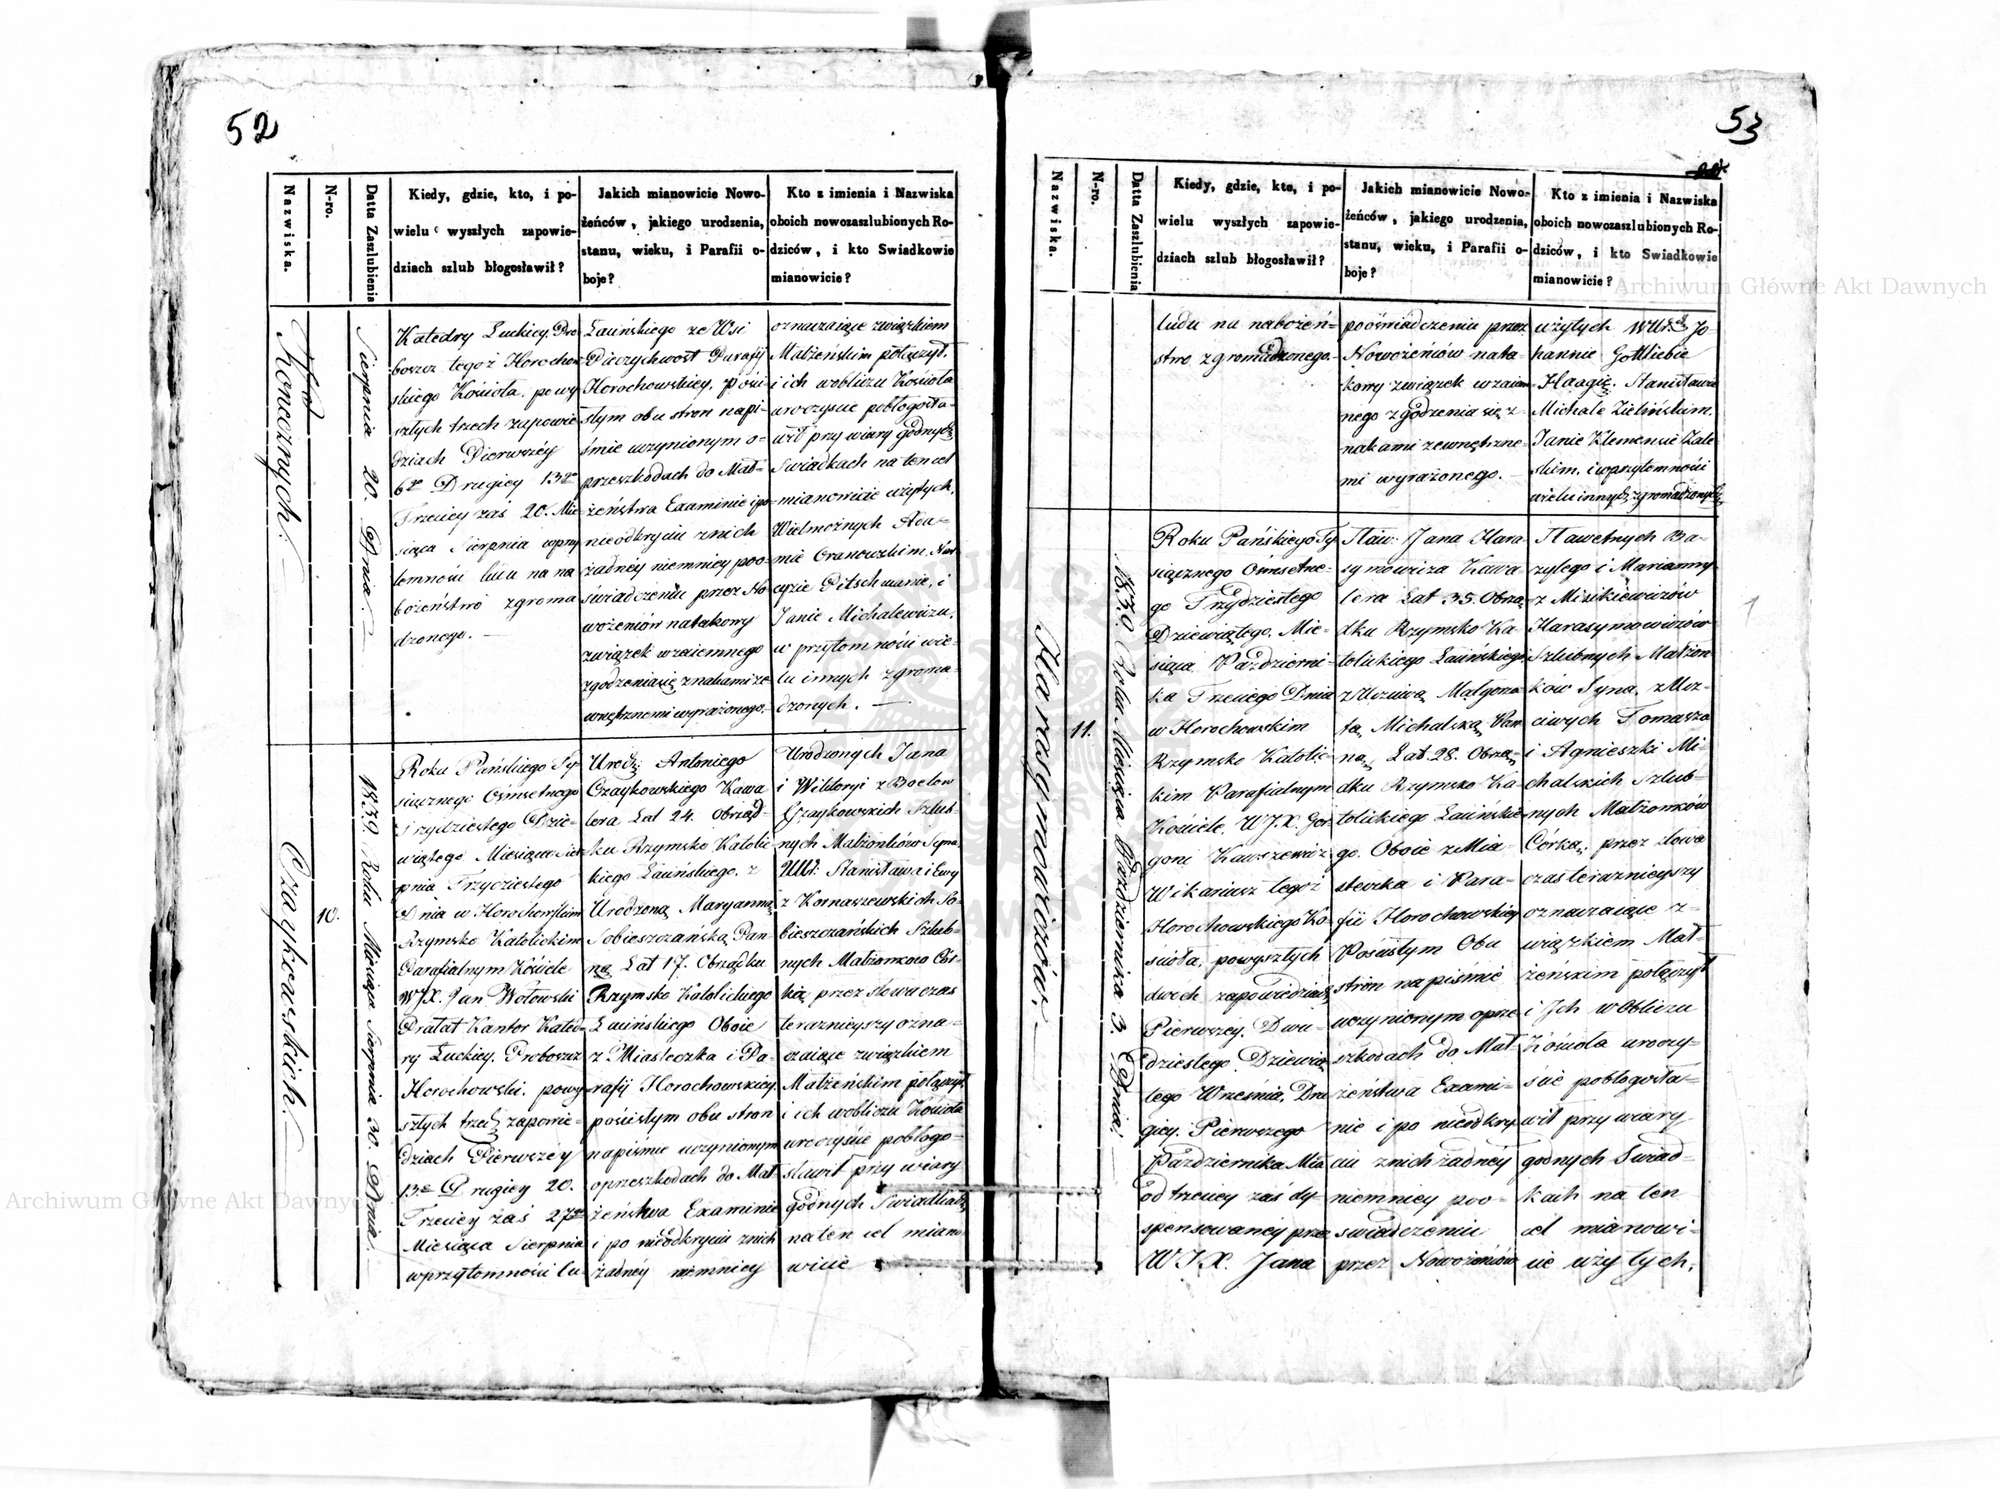 52
Nazwiska.
N-ro.
Datta Zaszlubienia
Kiedy, gdzie, kto, i po-
wielu wyszłych zapowie-
dziach szlub błogosławił?
Jakich mianowicie Nowo-
żeńców, jakiego urodzenia,
stanu, wieku, i Parafii o-
boje?
Kto z imienia i Nazwiska
oboich nowozaszlubionych Ro-
dziców, i kto Swiadkowie
mianowicie?
Konawznych.
Sierpnia 20. Dnia.
Katedry Łuckiey, Pro
boszcz tegoż Horochow
skiego Kościoła, po wy
szłych trzech zapowie
dziach Pierwszéy
6go Drugiey 13go
Trzeciey zaś 20. Mie
siąca Sierpnia wprzy
temności ludu na na
bożeństwo zgroma
dzonego.
Łacińskiego ze Wsi
Pieczychwost Parafij
Horochowskiey, pości
słym obu stron napi-
śmie uczynionym o-
przeszkodach do Mał-
żeństwa Examinie ipo
nieodkryciu znich
żadnéy niemniey poo-
świadczeniu przez No
wożeńców natakowy
związek wzaiemnego
zgodzenia się znakami ze
wnętrznemi wyrażonego.
oznaczaiące związkiem
Małżeńskim połączył.
i ich wobliczu Kościoła
uroczyście pobłogosła-
wił przy wiary godnych
Swiadkach na ten cel
mianowicie użytych,
Wielmożnych Ada-
mie Granowskim, Nar
cyzie Pitschmanie, i
Janie Michalewiczu,
w przytomności wie-
lu innych zgroma-
dzonych.
Czaykowskich.
10.
1839 Roku Miesiąca Sierpnia 30. Dnia.
Roku Pańskiego Ty
siącznego Ośmsetnego
Trzydziestego Dzie-
wiątego Miesiąca Sier
pnia Trzydziestego
Dnia w Horochowskim
Rzymsko Katolickim
Parafialnym Kościele
WJX. Jan Wołowski
Prałat Kantor Kated-
ry Łuckiey, Proboszcz
Horochowski, powy
szłych trzech zapowie-
dziach Pierwszéy
13go Drugiey 20.
Trzeciey zaś 27go
Miesiąca Sierpnia
wprzytomności lu
Urodz: Antoniego
Czaykowskiego Kawa
lera Lat 24. Obrząd-
ku Rzymsko Katolic
kiego Łacińskiego, z
Urodzoną Maryanną
Sobieszczańską Pan-
ną Lat 17. Obrządku
Rzymsko Katolickiego
Łacińskiego Oboie
z Miasteczka i Pa-
rafij Horochowskiey,
pościsłym obu stron
napiśmie uczynionym
oprzeszkodach do Mał
żeństwa Examinie
i po nieodkryciu znich
żadnéy niemniey
Urodzonych Jana
i Wiktoryi z Bocłow
Czaykowskich Szlub-
nych Małżonków Syna,
UUr: Stanisława i Ewy
z Komaszewskich So-
bieszczańskich Szlub-
nych Małżonków Cór-
ką przez słowa czas
teraznieyszy ozna-
czaiące związkiem
Małżeńskim połączył
i ich wobliczu Kościoła
uroczyście pobłogo-
sławił przy wiary
godnych Swiadkach
na ten cel miano
wicie
53
Nazwiska.
N-ro.
Datta Zaszlubienia
Kiedy, gdzie, kto, i po-
wielu wyszłych zapowie-
dziach szlub błogosławił?
Jakich mianowicie Nowo-
żeńców, jakiego urodzenia,
stanu, wieku, i Parafii o-
boje?
Kto z imienia i Nazwiska
oboich nowozaszlubionych Ro-
dziców, i kto Swiadkowie
mianowicie?
ludu na nabożeń-
stwo zgromadzonego.
pooświadczeniu przez
Nowożeńców nata-
kowy związek wzaiem-
nego zgodzenia się z-
nakami zewnętrzne-
mi wyrażonego.
użytych WUr. Jo
hannie Gottliebie
Haagie, Stanisławie
Michale Zielińskim,
Janie Klemensie Zale-
skim, i wprzytomności
wielu innych zgromadzonych
Harasymowiczów.
11.
1839. Roku Miesiąca Października 3. Dnia.
Roku Pańskiego Ty
siącznego Ośmsetne-
go Trzydziestego
Dziewiątego, Mie-
siąca Październi-
ka Trzeciego Dnia
w Horochowskim
Rzymsko Katolic-
kim Parafialnym
Kościele, WJX. Grze
gorz Kawszewicz
Wikariusz tegoż
Horochowskiego Ko-
ścioła, powyszłych
dwóch zapowiedziach
Pierwszey, Dwu-
dziestego Dziewią-
tego Września, Dru
giey, Pierwszego
Października Mia
od trzeciey zaś dy-
spensowaney przez
WJX. Jana
Sław: Jana Hara
symowicza Kawa-
lera Lat 35. Obrzą
dku Rzymsko Ka-
tolickiego Łacińskiego
z Uczciwą Małgorza
tą Michalską Pan
ną, Lat 28. Obrzą-
dku Rzymsko Ka-
tolickiego Łacińskie-
go. Oboie z Mia-
steczka i Para-
fii Horochowskiey
Pościsłym Obu
stron na piśmie
uczynionym oprze-
szkodach do Mał-
żeństwa Exami-
nie i po nieodkry
ciu znich żadnéy
niemniey poo-
świadczeniu
przez Nowożeńców
Sławetnych Ba-
zylego i Marianny
z Misikiewiczów
Harasymowiczów
Szlubnych Małżon-
ków Syna, z Ucz-
ciwych Tomasza
i Agnieszki Mi-
chalskich Szlub-
nych Małżonków
Córką, przez słowa
czas teraznieyszy
oznaczaiące z-
wiązkiem Mał-
żeńskim połączył
i Ich w Obliczu
Kościoła uroczy-
ście pobłogosła-
wił przy wiary
godnych Swiad-
kach na ten
cel mianowi-
cie użytych,
Archiwum Główne Akt Dawnych
Archiwum Główne Akt Dawnych